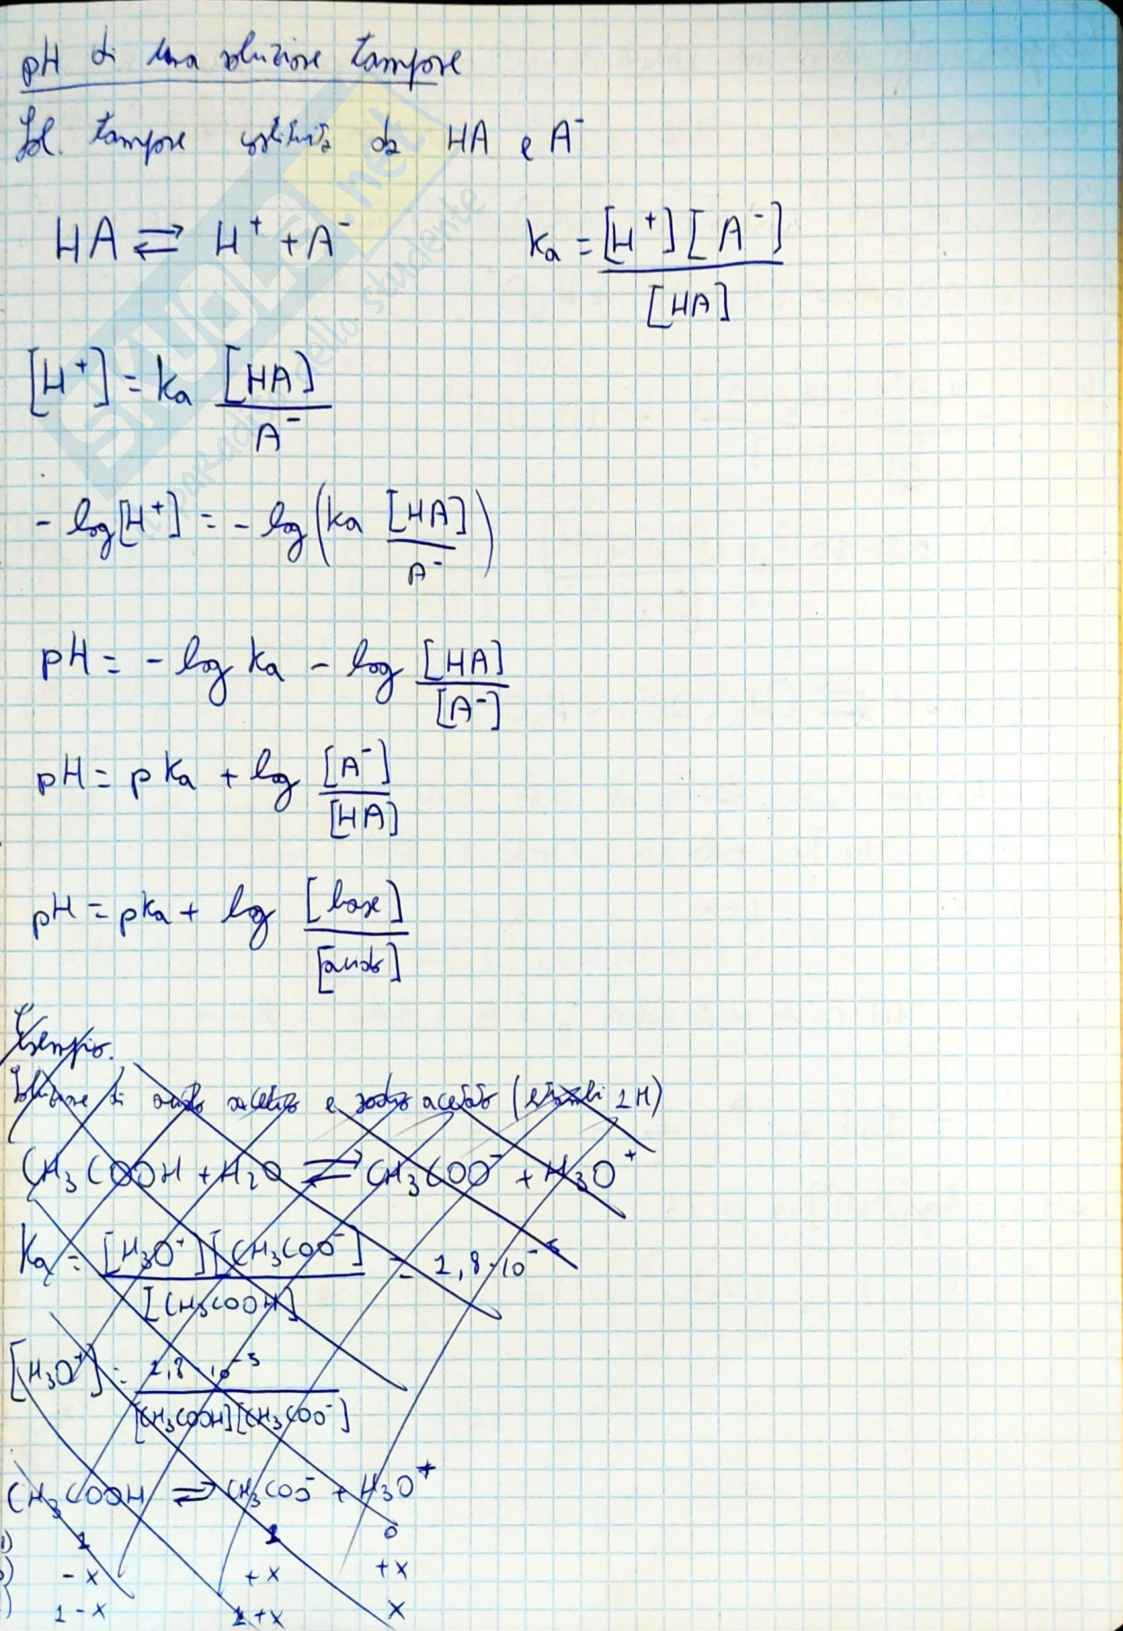 pH di una soluzione tampone
Sol. tampone costituita da HA e A⁻
HA ⇄ H⁺ + A⁻    ka = [H⁺][A⁻] / [HA]
[H⁺] = ka [HA] / A⁻
- log[H⁺] = - log(ka [HA] / A⁻)
pH = - log ka - log [HA] / [A⁻]
pH = pka + log [A⁻] / [HA]
pH = pka + log [base] / [acido]
Esempio.
Soluzione di acido acetico e sodio acetato (entrambi 1M)
CH₃COOH + H₂O ⇄ CH₃COO⁻ + H₃O⁺
Ka = [H₃O⁺][CH₃COO⁻] / [CH₃COOH] = 1,8·10⁻⁵
[H₃O⁺] = 1,8·10⁻⁵ / [CH₃COOH][CH₃COO⁻]
CH₃COOH ⇄ CH₃COO⁻ + H₃O⁺
1 1 0
-x +x +x
1-x 1+x x
SKUOLA.net